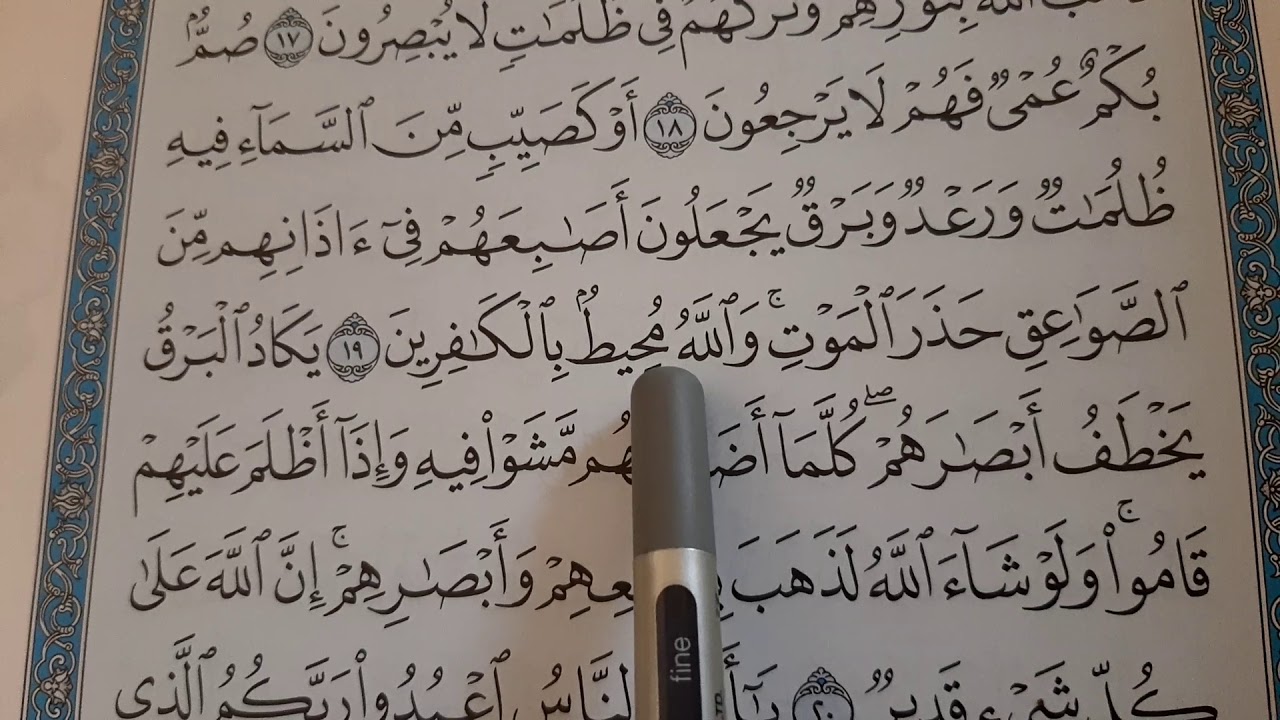 ٱللَّهُ بِنُورِهِمْ وَتَرَكَهُمْ فِى ظُلُمَٰتٍ لَّا يُبْصِرُونَ ١٧ صُمٌّۢ
بُكْمٌ عُمْىٌ فَهُمْ لَا يَرْجِعُونَ ١٨ أَوْ كَصَيِّبٍ مِّنَ ٱلسَّمَآءِ فِيهِ
ظُلُمَٰتٌ وَرَعْدٌ وَبَرْقٌ يَجْعَلُونَ أَصَٰبِعَهُمْ فِىٓ ءَاذَانِهِم مِّنَ
ٱلصَّوَٰعِقِ حَذَرَ ٱلْمَوْتِ ۚ وَٱللَّهُ مُحِيطٌۢ بِٱلْكَٰفِرِينَ ١٩ يَكَادُ ٱلْبَرْقُ
يَخْطَفُ أَبْصَٰرَهُمْ ۖ كُلَّمَآ مَّشَوْا۟ فِيهِ وَإِذَآ أَظْلَمَ عَلَيْهِمْ
قَامُوا۟ ۚ وَلَوْ شَآءَ ٱللَّهُ لَذَهَبَ وَأَبْصَٰرِهِمْ ۚ إِنَّ ٱللَّهَ عَلَىٰ
كُلِّ شَىْءٍ قَدِيرٌ ٢٠ ٱعْبُدُوا۟ رَبَّكُمُ ٱلَّذِى
fine